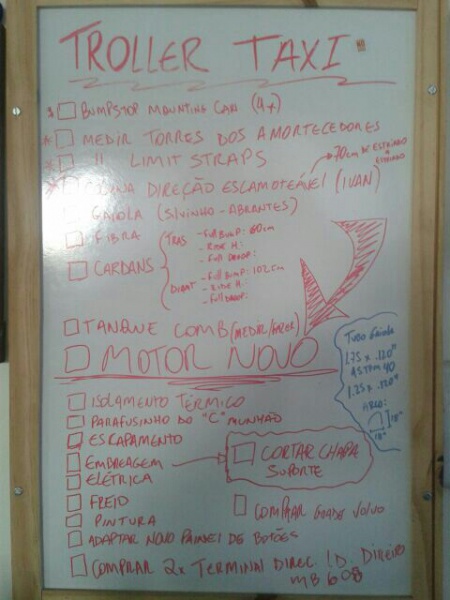 TROLLER TAXI
BUMPSTOP MOUNTING CAN (4x)
* MEDIR TORRES DOS AMORTECEDORES
* " LIMIT STRAPS
70cm DE ESTRIADO A ESTRIADO
* COLUNA DIREÇÃO ESCAMOTEÁVEL (IVAN)
GAIOLA (SIVINHO - ABRANTES)
FIBRA
CARDANS
TRAS - FULL BUMP: 60cm
- RIDE H.:
- FULL DROOP:
DIANT - FULL BUMP: 102cm
- RIDE H.:
- FULL DROOP:
TANQUE COMB (MEDIR/FAZER)
MOTOR NOVO
TUBO GAIOLA
1.75 x .120"
ASTM 40
1.25 x .120"
ARCO:
18"
18"
ISOLAMENTO TÉRMICO
PARAFUSINHO DO "C" MUNHÃO
ESCAPAMENTO
EMBREAGEM
CORTAR CHAPA
SUPORTE
ELÉTRICA
FREIO
COMPRAR GRADE VOLVO
PINTURA
ADAPTAR NOVO PAINEL DE BOTÕES
COMPRAR 2x TERMINAL DIREC. LD. DIREITO
MB 608